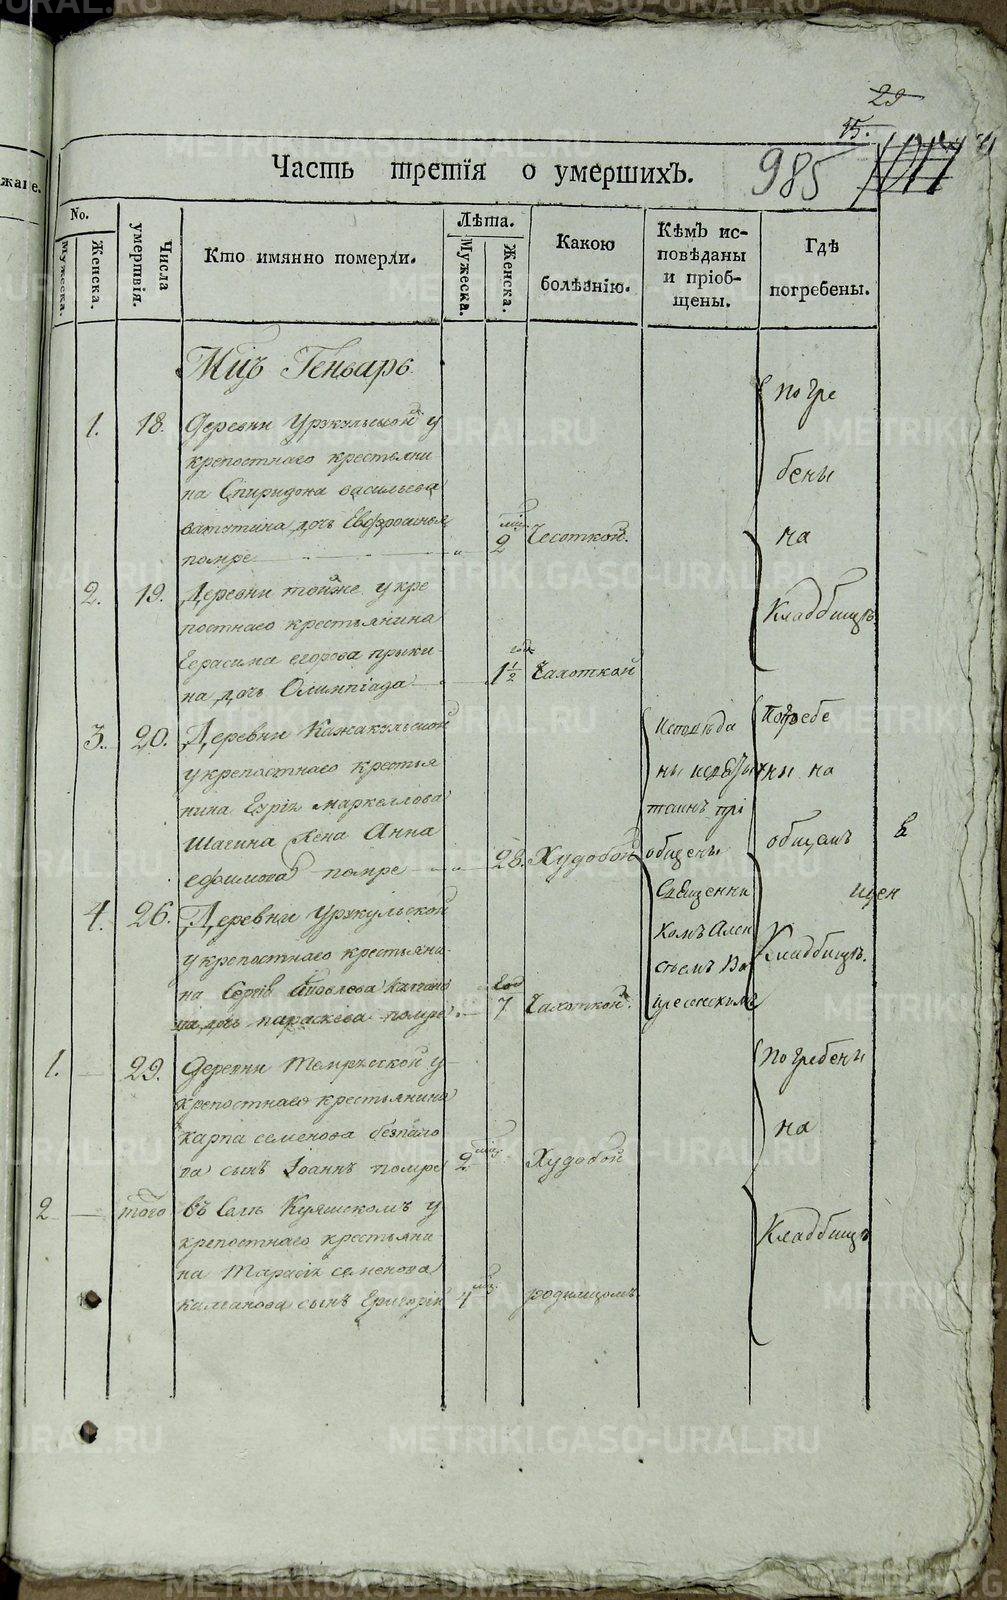 29
15.
Часть третія о умершихъ.
985
1017
No.
Мужеска.
Женска.
Числа умертвія.
Кто имянно померли.
Лѣта.
Мужеска.
Женска.
Какою болѣзнію.
Кѣмъ ис-
повѣданы
и пріоб-
щены.
Гдѣ
погребены.
Мцъ Генварь
1. 18. Деревни Уржкульской у
крепостнаго крестьяни
на Спиридона васильева
ватутина дочь Евфросинья
помре 2 мц Чесоткой.
погре
бены
на
Кладбищѣ
2. 19. Деревни тойже укре
постнаго крестьянина
Герасима егорова
на дочь Олимпіада 1 1/2 года Чахоткой
3. 20. Деревни Кажакульской
укрепостнаго крестья
нина маркеллова
Шагина Жена Анна
ефимова помре 28. Худобой
Исповѣда
ны
таинъ прі
общены
Священни
комъ Алек
сѣемъ
Погребе
ны на
общемъ
в
Кладбищѣ.
4. 26. Деревни Уржкульской
укрепостнаго крестьяни
на Сергѣя Яковлева
дочь параскева помре 7 год Чахоткой
1. 29. Деревни у
крепостнаго крестьянина
карпа семенова безпало
ва сынъ Іоаннъ помре 2 мц Худобой
Погребены
на
Кладбищѣ
2 того въ Селѣ Куяшскомъ у
крепостнаго крестьяни
на Тарасія семенова
калганова сынъ Григорій 4 мц. родимцомъ
METRIKI.GASO-URAL.RU